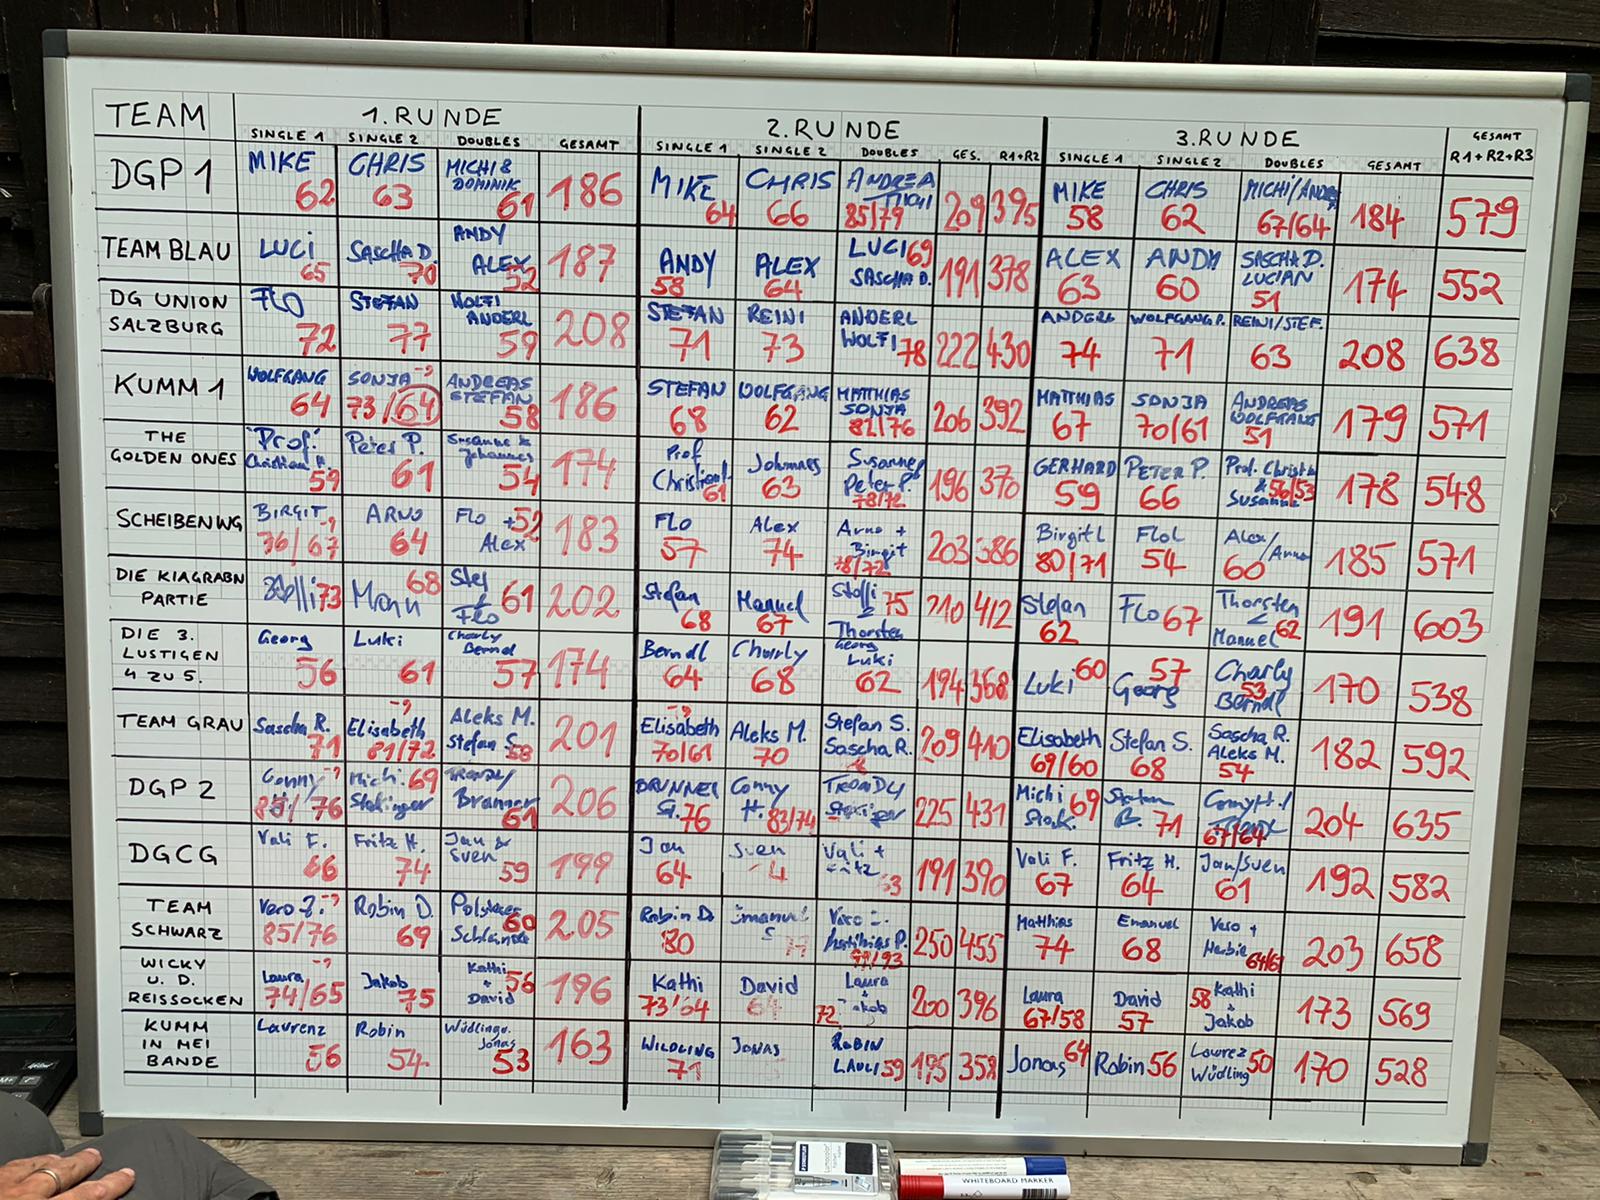 TEAM
1. RUNDE
2. RUNDE
3. RUNDE
GESAMT R1+R2+R3
SINGLE 1 SINGLE 2 DOUBLES GESAMT SINGLE 1 SINGLE 2 DOUBLES GES. R1+R2 SINGLE 1 SINGLE 2 DOUBLES GESAMT
DGP 1 MIKE 62 CHRIS 63 MICHI & DOMINIK 61 186 MIKE 64 CHRIS 66 ANDREA MICHI 85/79 209 395 MIKE 58 CHRIS 62 MICHI/ 67/64 184 579
TEAM BLAU LUCI 65 SASCHA D. 70 ANDY ALEX 52 187 ANDY 58 ALEX 64 LUCI 69 SASCHA D. 191 378 ALEX 63 ANDY 60 SASCHA D. LUCIAN 51 174 552
DG UNION SALZBURG FLO 72 STEFAN 77 WOLFI ANDERL 59 208 STEFAN 71 REINI 73 ANDERL WOLFI 78 222 430 ANDERL 74 WOLFGANG P. 71 REINI/STEF. 63 208 638
KUMM 1 WOLFGANG 64 SONJA 73/64 ANDREAS STEFAN 58 186 STEFAN 68 WOLFGANG 62 MATTHIAS SONJA 82/76 206 392 MATTHIAS 67 SONJA 70/61 ANDREAS WOLFGANG 51 179 571
THE GOLDEN ONES "Prof." Christian H. 59 Peter P. 61 Susanne & Johannes 54 174 Prof Christian 61 Johannes 63 Susanne Peter P. 78/72 196 370 GERHARD 59 PETER P. 66 Prof. Christian & Susanne 56/53 178 548
SCHEIBEN WG BIRGIT 76/67 ARNO 64 Flo + Alex 52 183 FLO 57 Alex 74 Arno + Birgit 78/72 203 386 Birgit L 80/71 FloL 54 Alex/Arno 60 185 571
DIE KIAGRABN PARTIE 73 68 Stef & Flo 61 202 Stefan 68 Manuel 67 Stolli & Thorsten 75 210 412 Stefan 62 Flo 67 Thorsten & Manuel 62 191 603
DIE 3. LUSTIGEN 4 ZU 5. Georg 56 Luki 61 Charly Bernd 57 174 Berndl 64 Charly 68 Georg Luki 62 194 368 Luki 60 Georg 57 Charly Berndl 53 170 538
TEAM GRAU Sascha R. 71 Elisabeth 81/72 Aleks M. Stefan S. 58 201 Elisabeth 70/61 Aleks M. 70 Stefan S. Sascha R. 209 410 Elisabeth 69/60 Stefan S. 68 Sascha R. Aleks M. 54 182 592
DGP 2 Conny 76 Michi 69 Brunner 61 206 BRUNNER St. 76 Conny H. 83/74 225 431 Michi Stok. 69 Stefan B. 71 Conny H./ 67/64 204 635
DGCG Vali F. 66 Fritz H. 74 Jan & Sven 59 199 Jan 64 Sven Vali + Fritz 191 390 Vali F. 67 Fritz H. 64 Jan/Sven 61 192 582
TEAM SCHWARZ Vero Z. 85/76 Robin D. 69 60 205 Robin D. 80 Emanuel Vero Z. Matthias P. 250 455 Matthias 74 Emanuel 68 Vero + Herbie 64/61 203 658
WICKY U. D. REISSOCKEN Laura 74/65 Jakob 75 Kathi + David 56 196 Kathi 73/64 David 64 Laura + Jakob 72 200 396 Laura 67/58 David 57 Kathi + Jakob 58 173 569
KUMM IN MEI BANDE Laurenz 56 Robin 54 Wüdling Jonas 53 163 WILDLING 71 JONAS ROBIN LAULI 59 195 358 Jonas 64 Robin 56 Laurez Wüdling 50 170 528
STAEDTLER
Lumocolor
WHITEBOARD MARKER